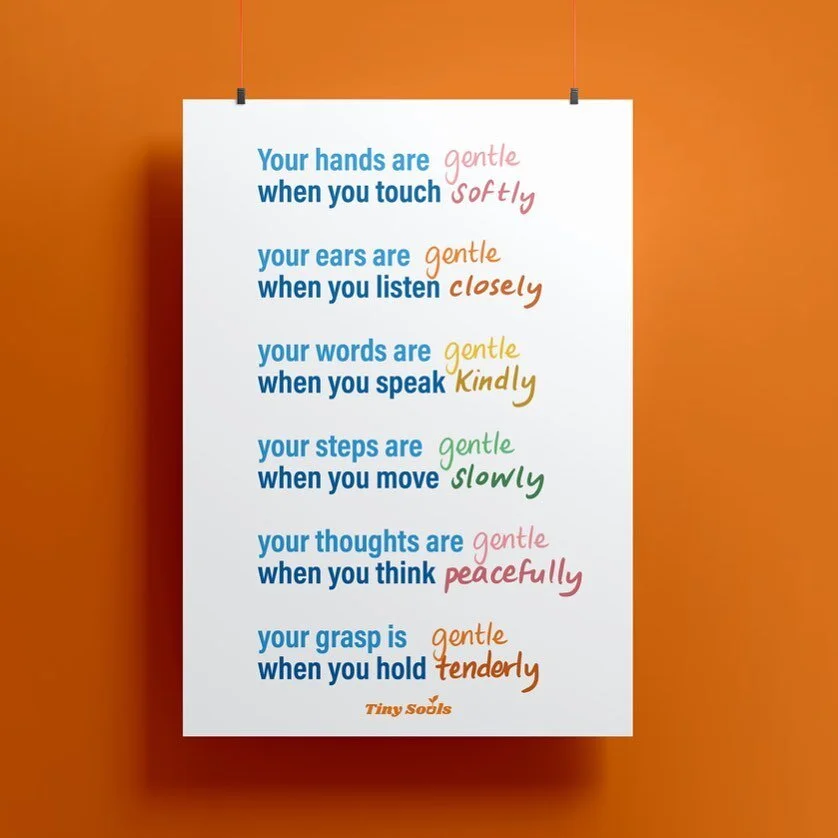 Your hands are gentle
when you touch softly
your ears are gentle
when you listen closely
your words are gentle
when you speak kindly
your steps are gentle
when you move slowly
your thoughts are gentle
when you think peacefully
your grasp is gentle
when you hold tenderly
Tiny Souls